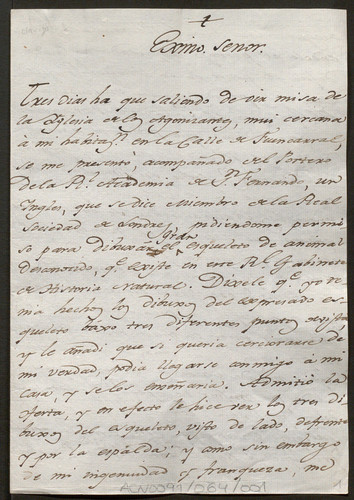 †
Exmo. Señor.
Tres dias ha que saliendo de oir misa de
la Yglesia de los Agonizantes, mui cercana
à mi habitaⁿ. en la Calle de Fuencarral,
se me presentò, acompañado del Portero
de la Rˡ. Academia de Sⁿ. Fernando, un
Yngles, que se dice miembro de la Real
Sociedad de Londres, pidiendome permi
so para dibuxar el gran esqueleto de animal
desconocido, qᵉ. existe en este Rˡ. Gabinete
de Historia Natural. Dixele qᵉ. yo te
nia hechos los dibuxos del expresado es
queleto baxo tres diferentes puntos de vista,
y le añadi que si queria cerciorarse de
mi verdad, podia llegarse conmigo à mi
casa, y se los enseñaria. Admitiò la
oferta, y en efecto le hice ver los tres di
buxos del esqueleto, visto de lado, de frente
y por la espalda; y como sin embargo
de mi ingenuidad y franqueza, me
ACN0091/064/001
1